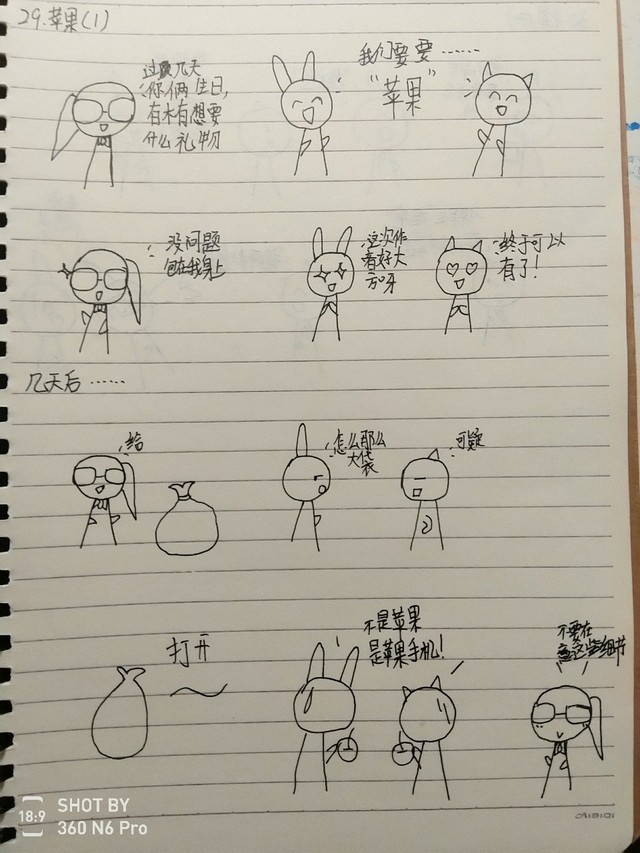 29.苹果(1)
过几天
你俩生日,
有木有想要
什么礼物
我们要要……
“苹果”
没问题
包在我身上
这次作
者好大
方呀
终于可以
有了!
几天后……
给
怎么那么
大袋
可疑
打开
不是苹果
是苹果手机!
不要在
意这些细节
18:9
SHOT BY
360 N6 Pro